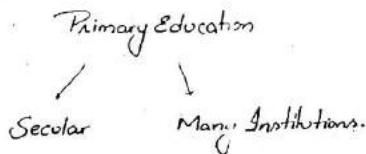 Primary Education
Secular
Many Institutions.